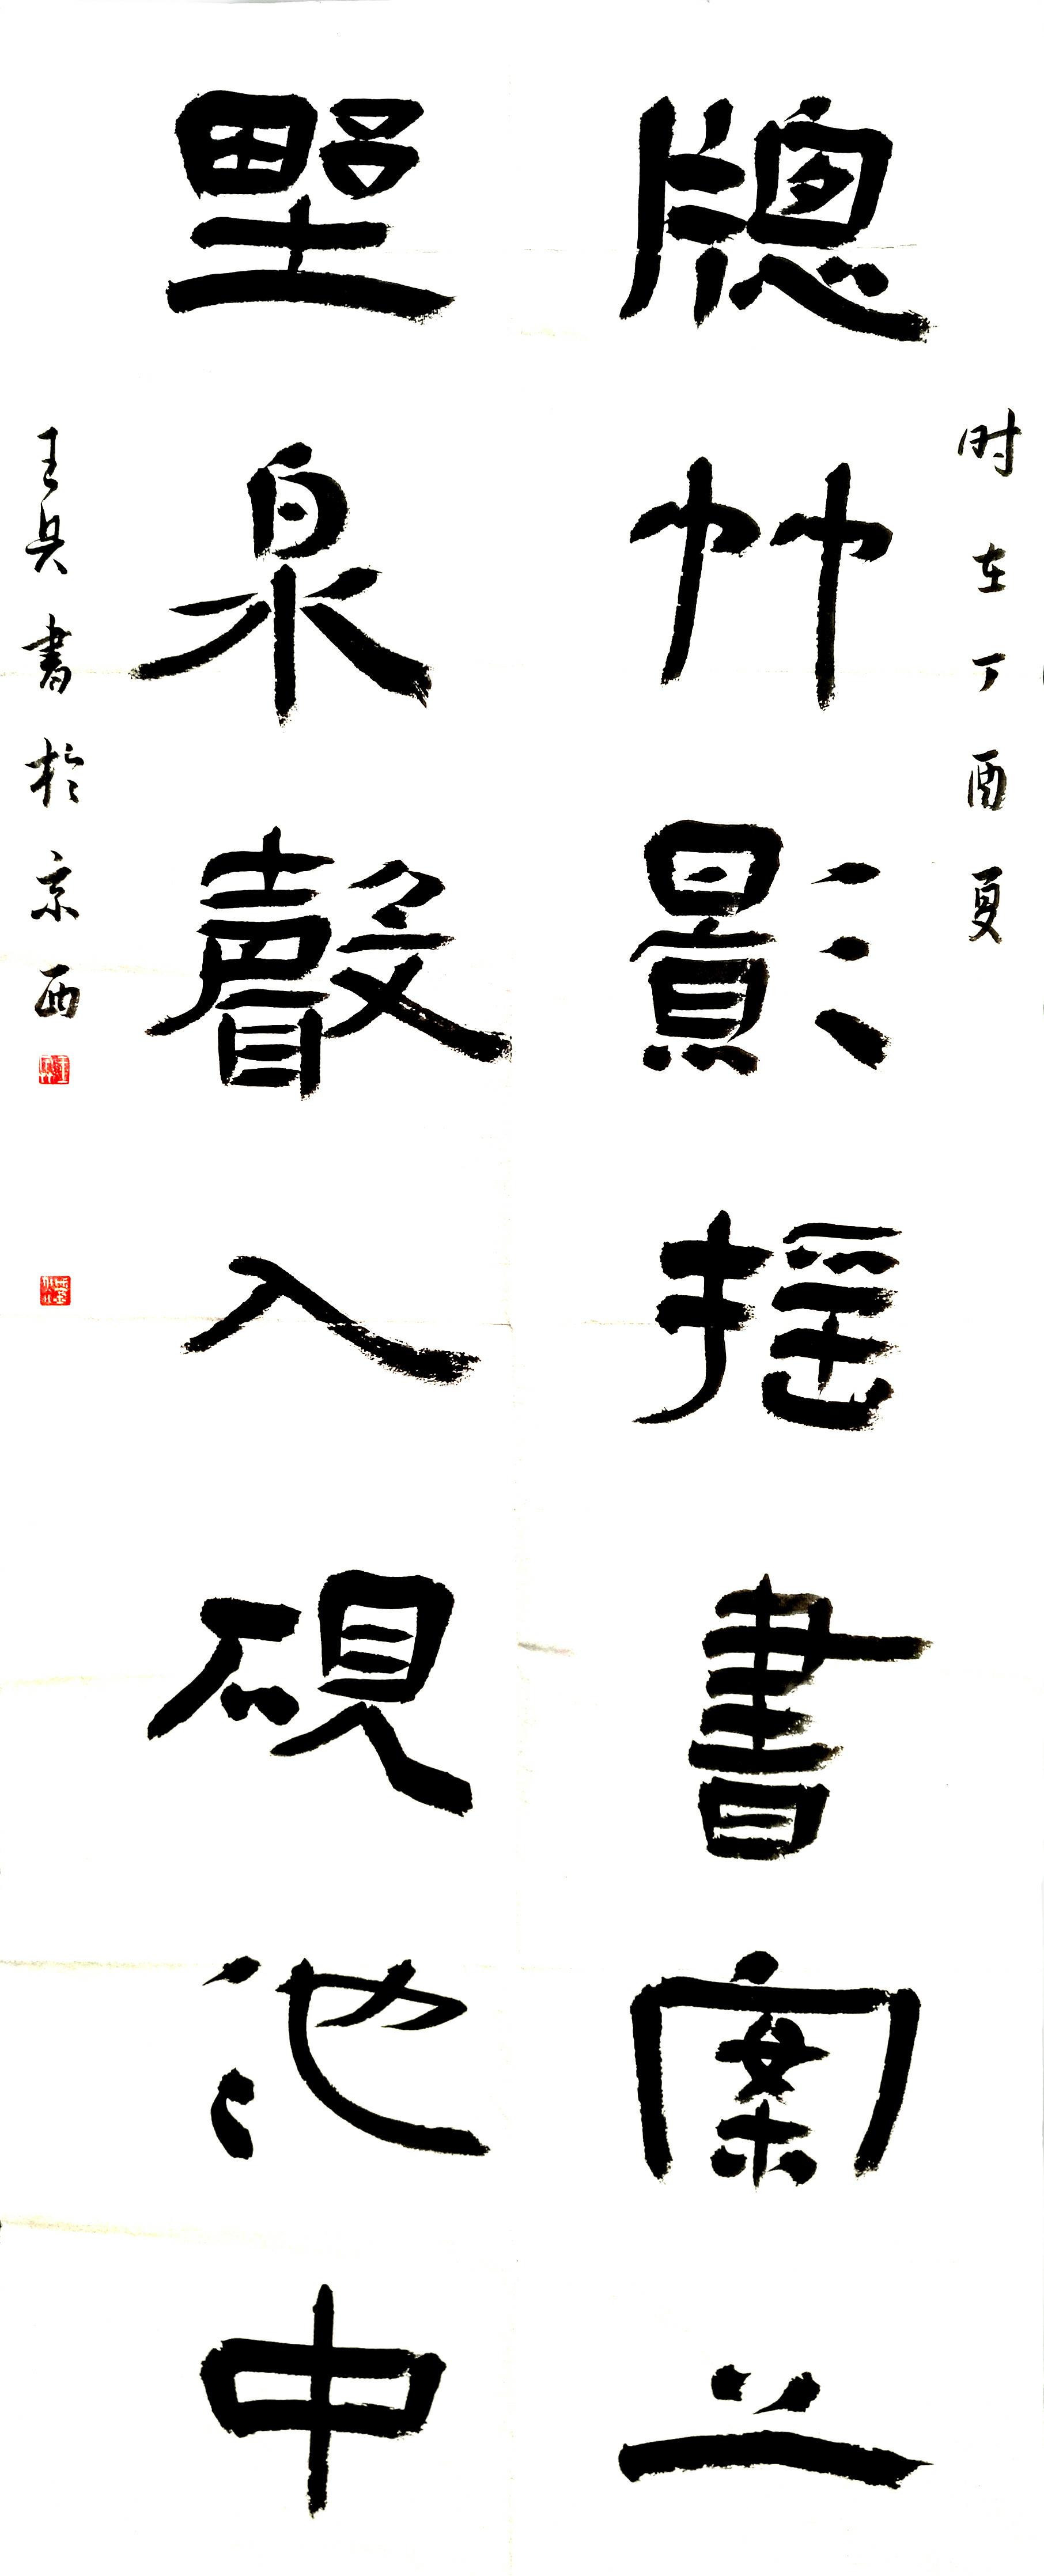 时在丁酉夏
牕竹影摇書案上
野泉聲入硯池中
王兵書於京西